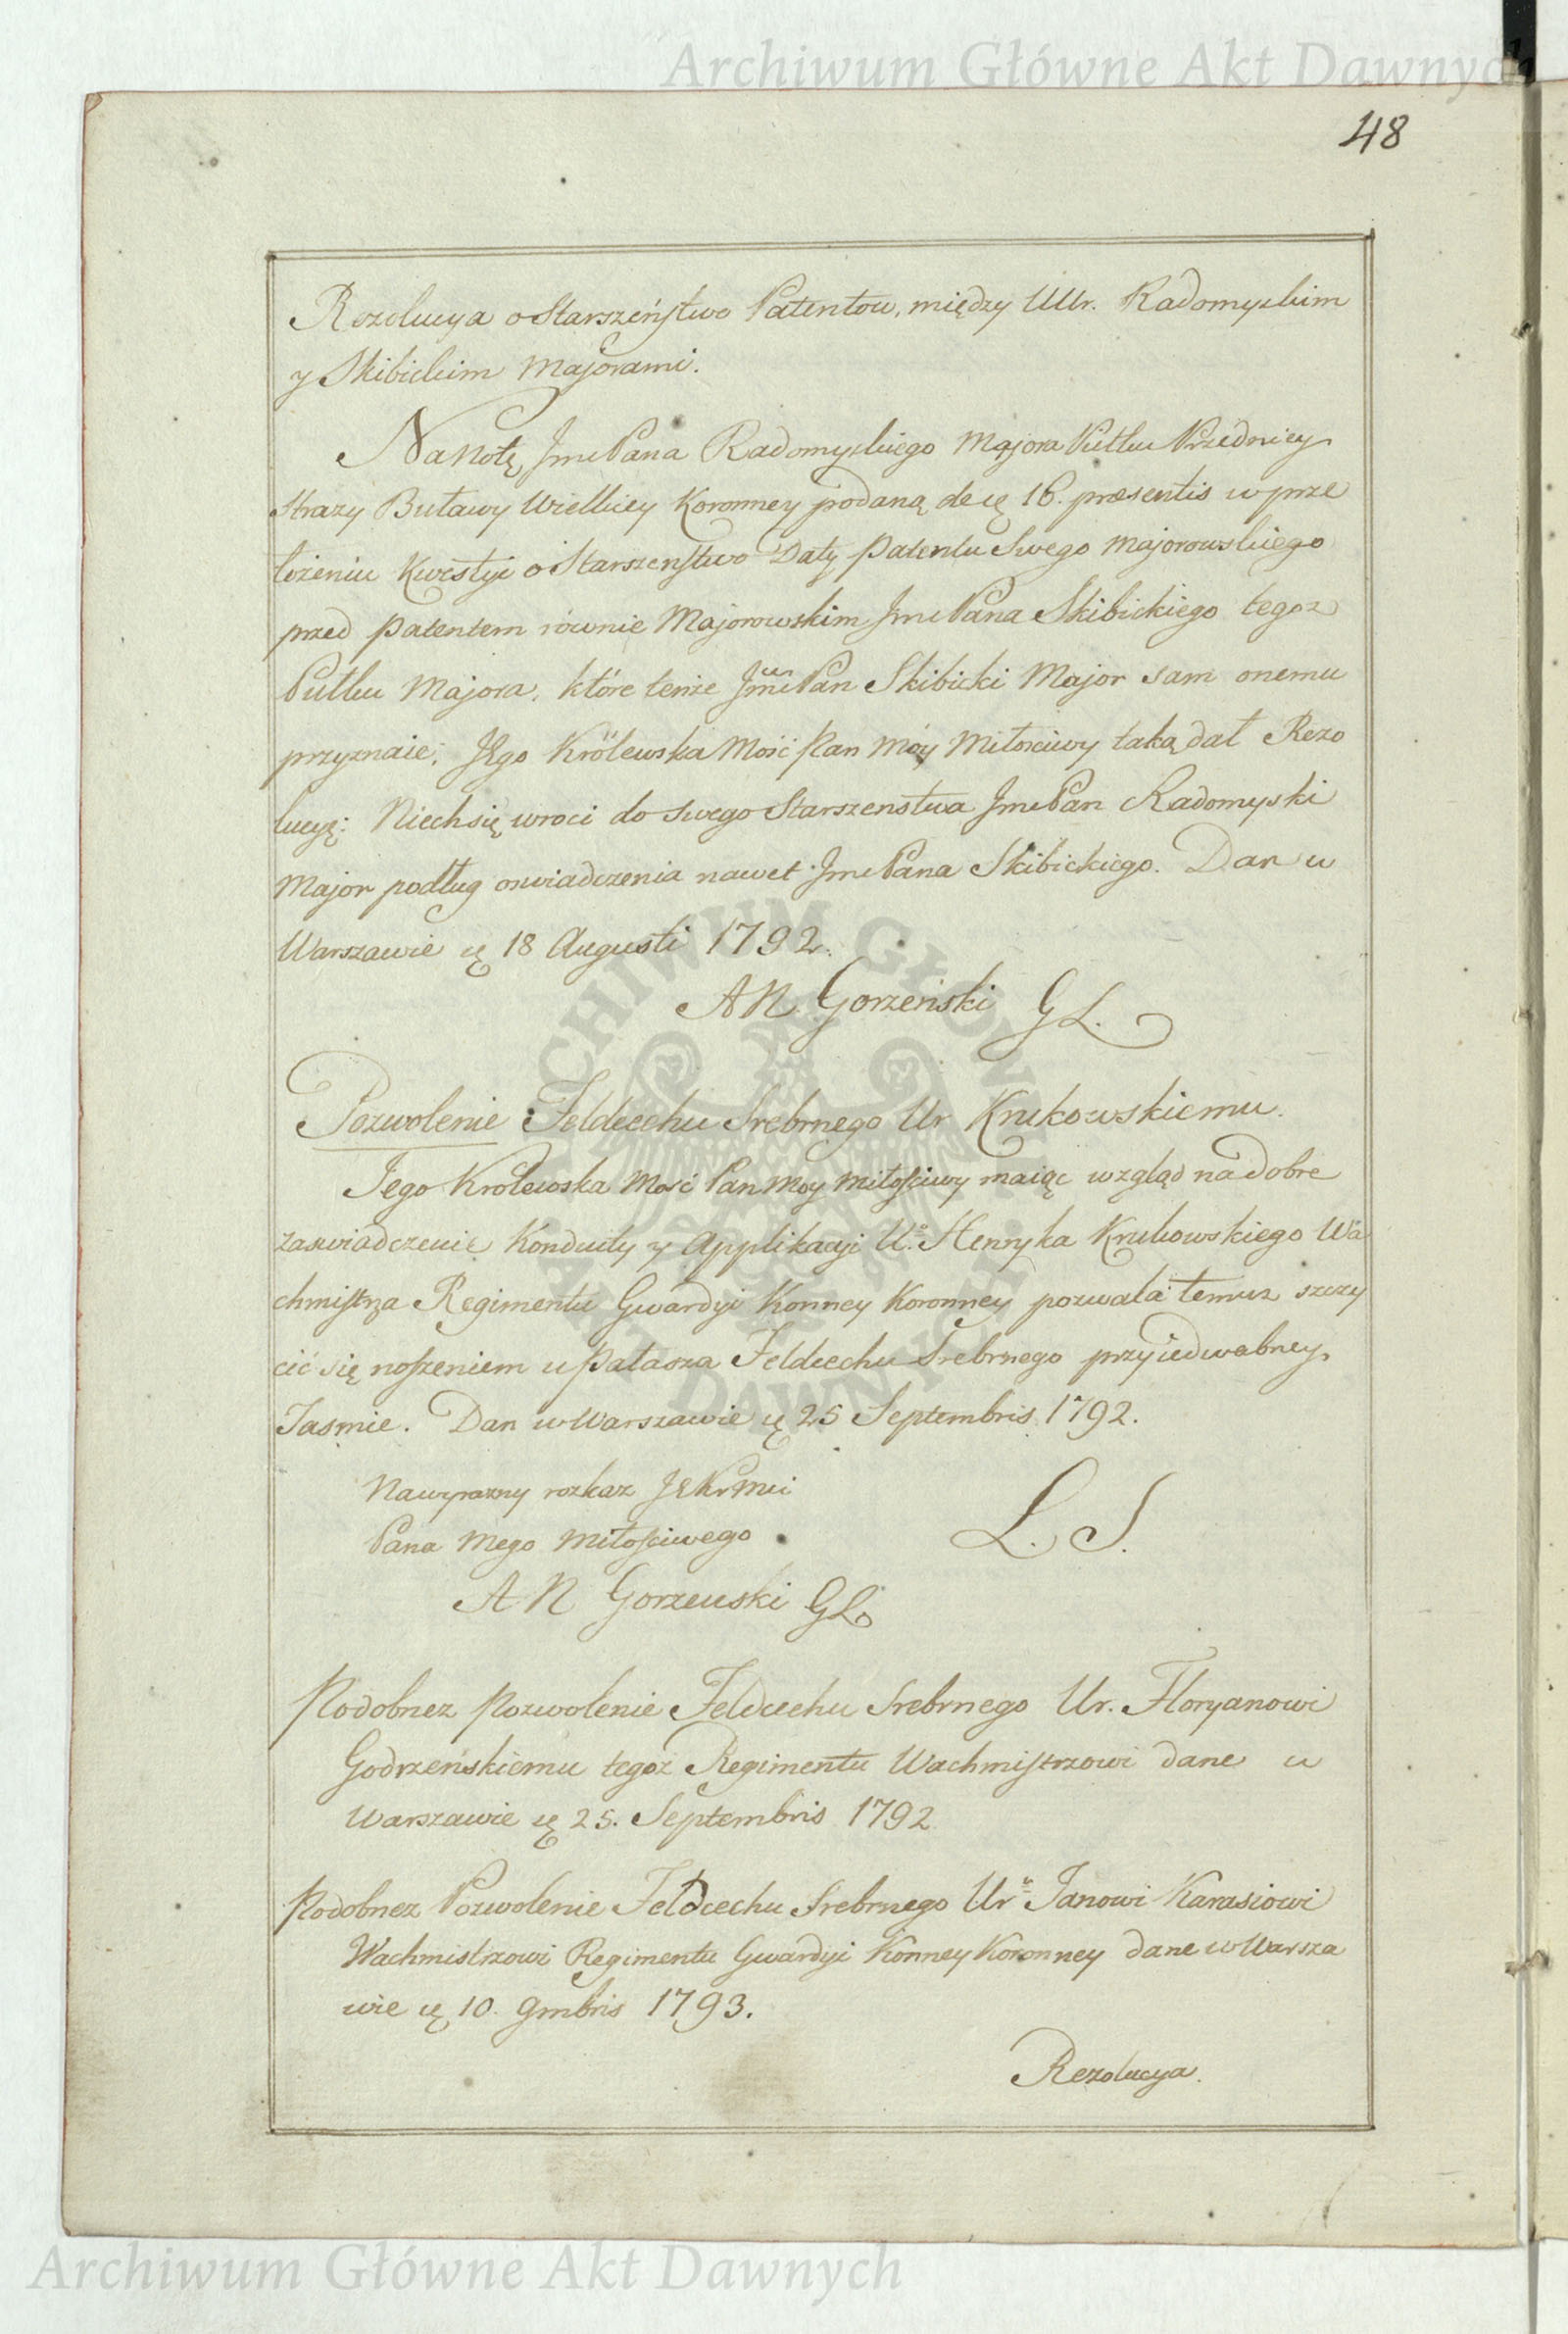 Archiwum Główne Akt Dawnych
48
Rezolucya o Starszeństwo Patentow, między UUr. Radomyskim
y Skibickim Majorami.
Na Notę Jmc Pana Radomyskiego Majora Pułku Przedniey
Strazy Buławy Wielkiey Koronney podaną de die 16. praesentis w prze
łożeniu Kwestyi o Starszenstwo Daty Patentu Swego Majorowskiego
przed Patentem równie Majorowskim Jmc Pana Skibickiego tegoz
Pułku Majora, które tenże Jmć Pan Skibicki Major sam onemu
przyznaie; JEgo Królewska Mość Pan Móy Miłościwy taką dał Rezo
lucyę: Niech się wroci do swego Starszenstwa Jmc Pan Radomyski
Major podług oswiadczenia nawet Jmc Pana Skibickiego. Dan w
Warszawie d. 18 Augusti 1792.
A N. Gorzeński G L.
Pozwolenie Feldcechu Srebrnego Ur Krukowskiemu.
Jego Królewska Mość Pan Moy Miłościwy maiąc wzgląd na dobre
zaswiadczenie Konduity y Applikacyi Uo. Henryka Krukowskiego Wa
chmistrza Regimentu Gwardyi Konney Koronney pozwala temuz szczy
cić się noszeniem u Pałasza Feldcechu Srebrnego przy iedwabney
Tasmie. Dan w Warszawie d. 25 Septembris 1792.
Na wyrazny rozkaz JEKr Mci
Pana Mego Miłościwego
L. S.
A N Gorzenski GL.
Podobnez Pozwolenie Feldcechu Srebrnego Ur. Floryanowi
Godrzeńskiemu tegoż Regimentu Wachmistrzowi dane w
Warszawie d. 25. Septembris 1792
Podobnez Pozwolenie Feldcechu Srebrnego Uru Janowi Karasiowi
Wachmistrzowi Regimentu Gwardyi Konney Koronney dane w Warsza
wie d. 10. 9mbris 1793.
Rezolucya.
Archiwum Główne Akt Dawnych